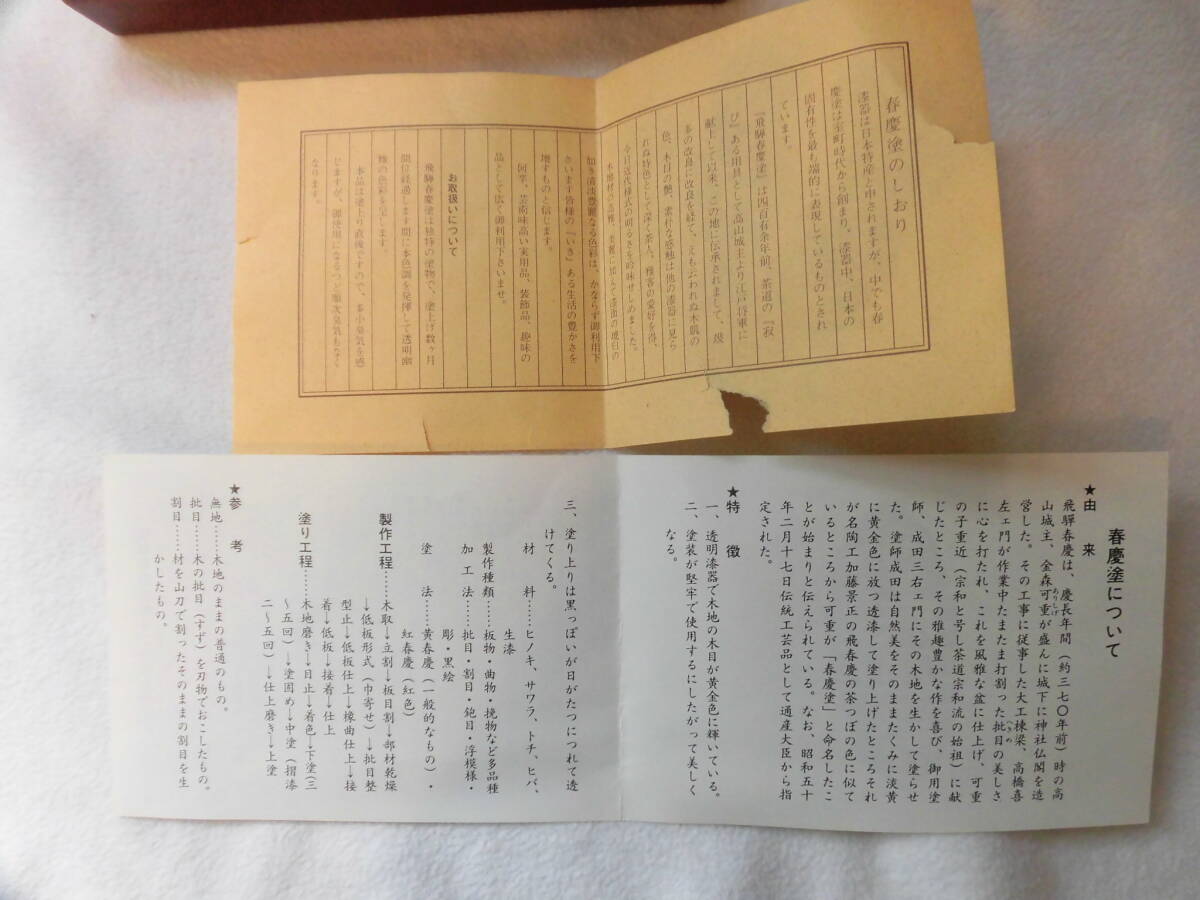 春慶塗のしおり
漆器は日本特産と申されますが、中でも春
慶塗は室町時代から創まり、漆器中、日本の
固有性を最も端的に表現しているものとされ
ています。
『飛騨春慶塗』は四百有余年前、茶道の『寂
び』ある用具として高山城主より江戸将軍に
献上して以来、この地に伝承されまして、幾
多の改良に改良を経て、えも云われぬ木肌の
色、木目の艶、素朴な感触は他の漆器に見ら
れぬ特色として深く茶人、雅客の愛好を得、
今日近代様式の明るさを吟味せしめました。
如き清淡豊麗なる色彩は、かならず御利用下
さいます皆様の『いき』ある生活の豊かさを
増すものと信じます。
何卒、芸術味高い実用品、装飾品、趣味の
品として広く御利用下さいませ。
お取扱いについて
飛騨春慶塗は独特の塗物で、塗上げ数ヶ月
間位経過します間に本色調を発揮して透明幽
雅の色彩を呈します。
本品は塗上り直後ですので、多少臭気を感
じますが、御使用になるつど順次臭気もなく
なります。
春慶塗について
★由来
飛騨春慶は、慶長年間(約三七〇年前)時の高
山城主、金森可重ありしげが盛んに城下に神社仏閣を造
営した。その工事に従事した大工棟梁、高橋喜
左ェ門が作業中たまたま打割った批目へぎめの美しさ
に心を打たれ、これを風雅な盆に仕上げ、可重
の子重近(宗和と号し茶道宗和流の始祖)に献
じたところ、その雅趣豊かな作を喜び、御用塗
師、成田三右ェ門にその木地を生かして塗らせ
た。塗師成田は自然美をそのままたくみに淡黄
に黄金色に放つ透漆して塗り上げたところそれ
が名陶工加藤景正の飛春慶の茶つぼの色に似て
いるところから可重が「春慶塗」と命名したこ
とが始まりと伝えられている。なお、昭和五十
年二月十七日伝統工芸品として通産大臣から指
定された。
★特徴
一、透明漆器で木地の木目が黄金色に輝いている。
二、塗装が堅牢で使用するにしたがって美しく
なる。
三、塗り上りは黒っぽいが日がたつにつれて透
けてくる。
材料……ヒノキ、サワラ、トチ、ヒバ、
生漆
製作種類……板物・曲物・挽物など多品種
加工法……批目・割目・鉋目・浮模様・
彫・黒絵
塗法……黄春慶(一般的なもの)・
紅春慶(紅色)
製作工程……木取→立割→板目割→部材乾燥
→低板形式(巾寄せ)→批目整
型止→低板仕上→橡曲仕上→接
着→低板→接着→仕上
塗り工程……木地磨き→目止→着色→下塗(三
〜五回)→塗固め→中塗(摺漆
二〜五回)→仕上磨き→上塗
★参考
無地……木地のままの普通のもの。
批目……木の批目(すず)を刃物でおこしたもの。
割目……材を山刀で割ったそのままの割目を生
かしたもの。